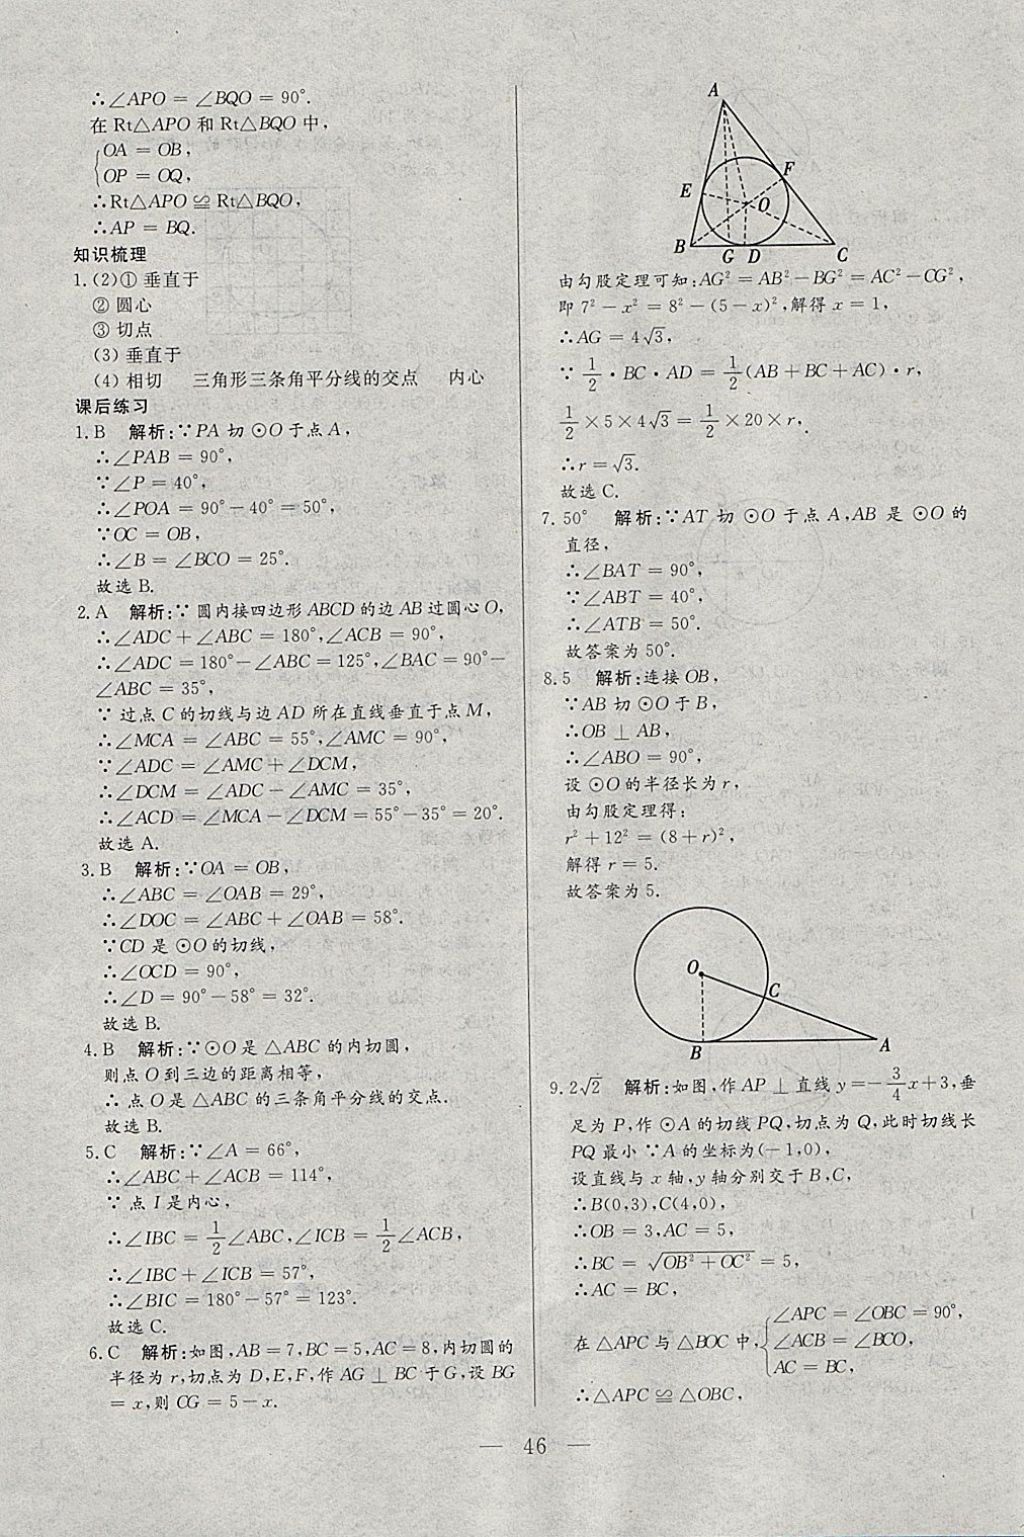 ∴∠APO = ∠BQO = 90°.
在 Rt△APO 和 Rt△BQO 中,
{OA = OB,
OP = OQ,
∴Rt△APO ≌ Rt△BQO,
∴AP = BQ.
知识梳理
1.(2)① 垂直于
② 圆心
③ 切点
(3) 垂直于
(4) 相切 三角形三条角平分线的交点 内心
课后练习
1.B 解析:∵PA 切 ⊙O于点A,
∴∠PAB = 90°,
∵∠P = 40°,
∴∠POA = 90°-40° = 50°,
∵OC = OB,
∴∠B = ∠BCO = 25°.
故选 B.
2.A 解析:∵ 圆内接四边形 ABCD 的边 AB 过圆心O,
∴∠ADC+∠ABC = 180°,∠ACB = 90°,
∴∠ADC = 180°-∠ABC = 125°,∠BAC = 90°-
∠ABC = 35°,
∵ 过点 C 的切线与边 AD 所在直线垂直于点 M,
∴∠MCA = ∠ABC = 55°,∠AMC = 90°,
∵∠ADC = ∠AMC+∠DCM,
∴∠DCM = ∠ADC-∠AMC = 35°,
∴∠ACD = ∠MCA-∠DCM = 55°-35° = 20°.
故选 A.
3.B 解析:∵OA = OB,
∴∠ABC = ∠OAB = 29°,
∴∠DOC = ∠ABC+∠OAB = 58°.
∵CD 是 ⊙O 的切线,
∴∠OCD = 90°,
∴∠D = 90°-58° = 32°.
故选 B.
4.B 解析:∵⊙O是 △ABC 的内切圆,
则点 O到三边的距离相等,
∴ 点 O 是 △ABC 的三条角平分线的交点.
故选 B.
5.C 解析:∵∠A = 66°,
∴∠ABC+∠ACB = 114°,
∵ 点 I 是内心,
∴∠IBC = 1/2∠ABC,∠ICB = 1/2∠ACB,
∴∠IBC+∠ICB = 57°,
∴∠BIC = 180°-57° = 123°.
故选 C.
6.C 解析:如图,AB = 7,BC = 5,AC = 8,内切圆的
半径为 r,切点为 D,E,F,作 AG ⊥ BC 于G,设 BG
= x,则 CG = 5-x.
A
E
F
O
B
G D
C
由勾股定理可知:AG² = AB²-BG² = AC²-CG²,
即 7²-x² = 8²-(5-x)²,解得 x = 1,
∴AG = 4√3,
∵ 1/2·BC·AD = 1/2(AB+BC+AC)·r,
1/2×5×4√3 = 1/2×20×r,
∴r = √3.
故选 C.
7.50° 解析:∵AT 切 ⊙O 于点 A,AB 是 ⊙O 的
直径,
∴∠BAT = 90°,
∵∠ABT = 40°,
∴∠ATB = 50°.
故答案为 50°.
8.5 解析:连接 OB,
∵AB 切 ⊙O 于 B,
∴OB ⊥ AB,
∴∠ABO = 90°,
设 ⊙O 的半径长为 r,
由勾股定理得:
r²+12² = (8+r)²,
解得 r = 5.
故答案为 5.
O
C
B
A
9.2√2 解析:如图,作 AP ⊥ 直线 y=-3/4x+3,垂
足为 P,作 ⊙A 的切线 PQ,切点为 Q,此时切线长
PQ 最小 ∵A 的坐标为(-1,0),
设直线与 x 轴,y 轴分别交于 B,C,
∴B(0,3),C(4,0),
∴OB = 3,AC = 5,
∴BC = √(OB²+OC²) = 5,
∴AC = BC,
在 △APC 与 △BOC 中,{∠APC = ∠OBC = 90°,
∠ACB = ∠BCO,
AC = BC,
∴△APC ≌ △OBC,
— 46 —